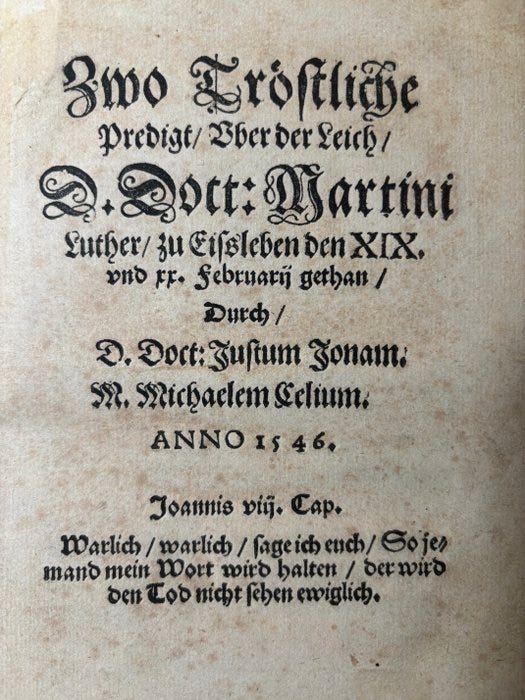 Zwo Tröstliche
Predigt/ Vber der Leich/
D. Doct: Martini
Luther/ zu Eissleben den XIX.
vnd xx. Februarij gethan/
Durch/
D. Doct: Justum Jonam.
M. Michaelem Celium.
ANNO 1546.
Joannis viij. Cap.
Warlich/ warlich/ sage ich euch/ So je-
mand mein Wort wird halten/ der wird
den Tod nicht sehen ewiglich.